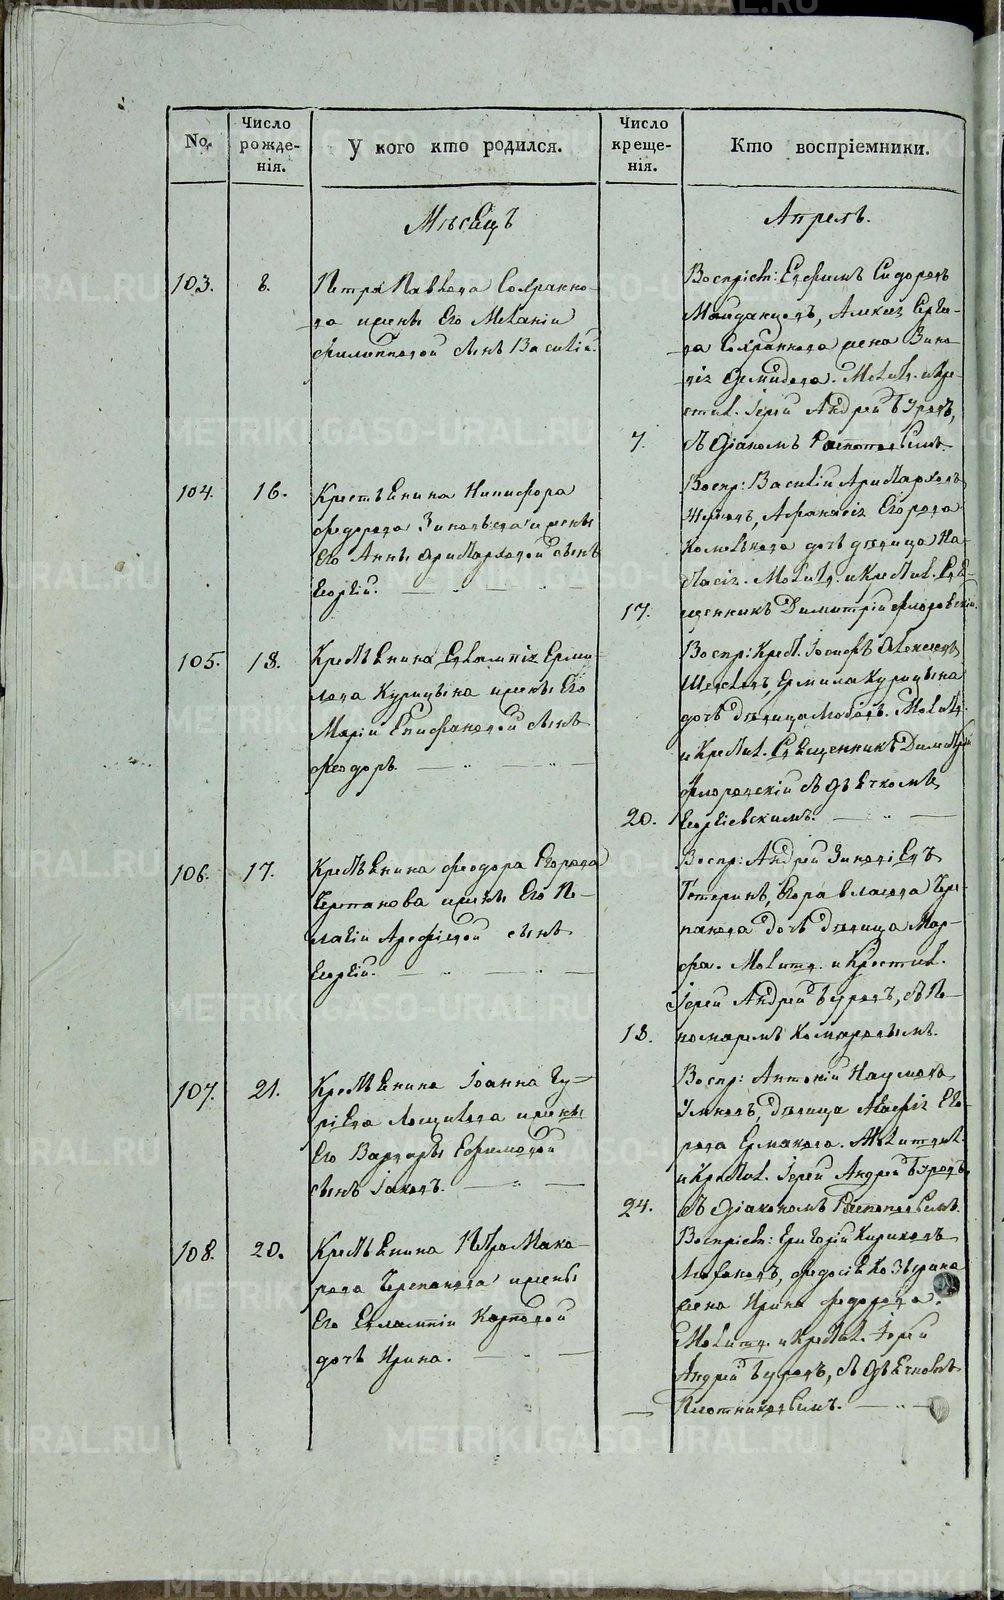 No. Число рожденія. У кого кто родился. Число крещенія. Кто воспріемники.
Мѣсяцъ Апрель.
103. 6.
Петра Павлова Сохранно-
ва жены его Меланіи
Филипповой сынъ Василій.
7.
Воспріем: Сидоровъ
Алексея Серге-
ва Сохраннова жена
Демидова. Молитв. и Кре-
стил. Іерей Андрей Буровъ,
съ Діаконъ Распоповымъ.
104. 16.
Крестьянина Никифора
Федорова и жены
его Анны Аристарховой сынъ
Георгій.
17.
Воспр: Василій Аристарховъ
Егорова
дочь дѣвица На-
стасія. Молитв. и Крестил. Свя-
щенникъ Димитрій Флоровскій.
105. 18.
Крестьянина Евлампія Ерми-
лова Курицына жены его
Маріи Епифановой сынъ
Феодоръ.
20.
Воспр: Крест. Іосифъ Алексеевъ
Ермила Курицына
дочь дѣвица Любовь. Молитв.
и Крестил. Священникъ Димитрій
Флоровскій съ дьячкомъ
Георгіевскимъ.
106. 17.
Крестьянина Феодора Егорова
Черепанова жены его Пе-
лагіи Арефіевой сынъ
Георгій.
18.
Воспр: Андрей
Егора Власова Чере-
панова дочь дѣвица Мар-
фа. Молитв. и Крестил.
Іерей Андрей Буровъ, съ По-
номаремъ Комаровымъ.
107. 21.
Крестьянина Іоанна Гу-
ріева Лощилова жены
его Варвары Ефимовой
сынъ Іаковъ.
24.
Воспр: Антоній Наумовъ
дѣвица Агафія Его-
рова Ермакова. Молитвил.
и Крестил. Іерей Андрей Буровъ
съ Діакономъ Распоповымъ.
108. 20.
Крестьянина Петра Мака-
рова Черепанова жены
его Евлампіи Карповой
дочь Ирина.
Воспріем: Григорій Кириловъ
жена Ирина Федорова.
Молитв. и Крестил. Іерей
Андрей Буровъ, съ Дьячкомъ
Плотниковымъ.
METRIKI.GASO-URAL.RU